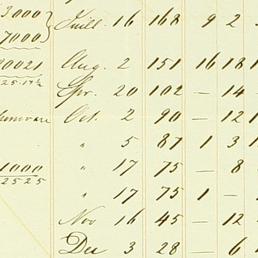 3000
7000 } Juill 16 168 9 2
20021 Aug. 2 151 16 18 1
25.17½
Spr. 20 102 — 14
Oct. 2 90 — 12 1
" 5 87 1 3 1
1000 " 17 75 — 8
2525
" 17 75 1 —
Nov 16 45 — 12
Dec 3 28 — 6